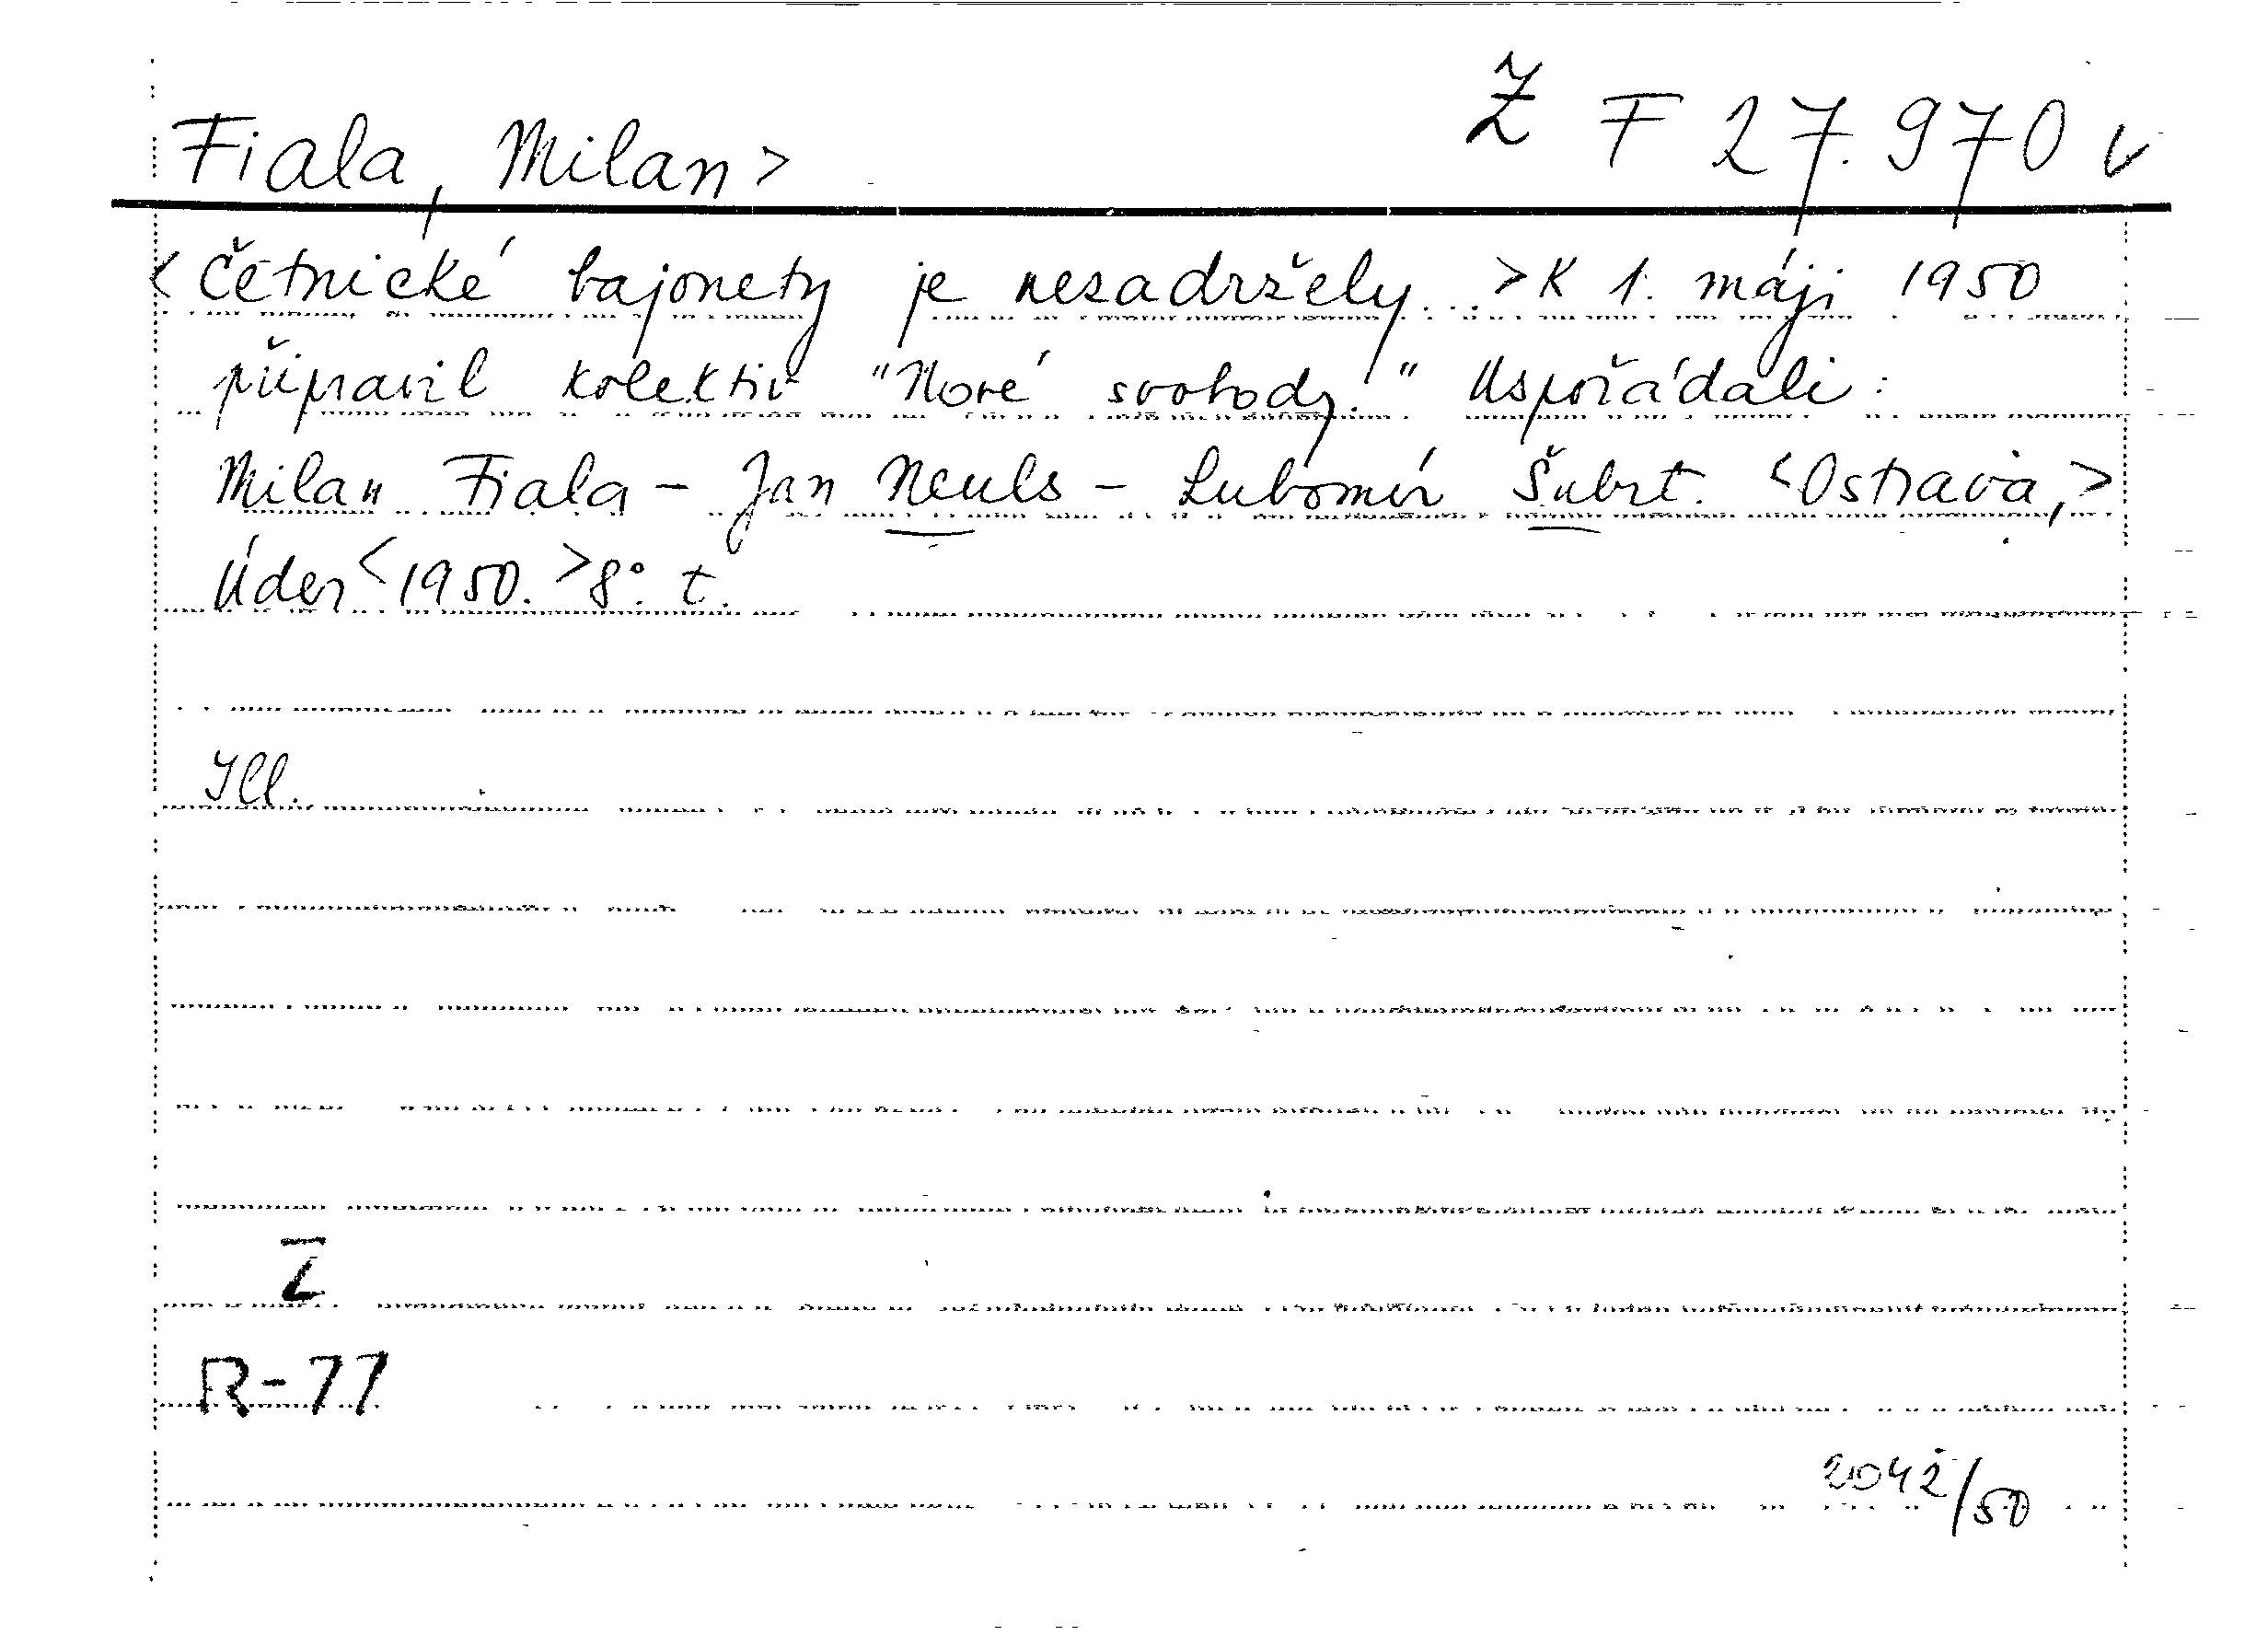 Fiala, Milan>
Ž F 27.970 v
<Četnické bajonety je nezadržely...>K 1. máji 1950
připravil kolektiv "Nové svobody." Uspořádali:
Milan Fiala - Jan Neuls - Lubomír Šubrt. <Ostrava,>
Úder <1950.> 8°. t.
Ill.
Z
R-77
2042/50